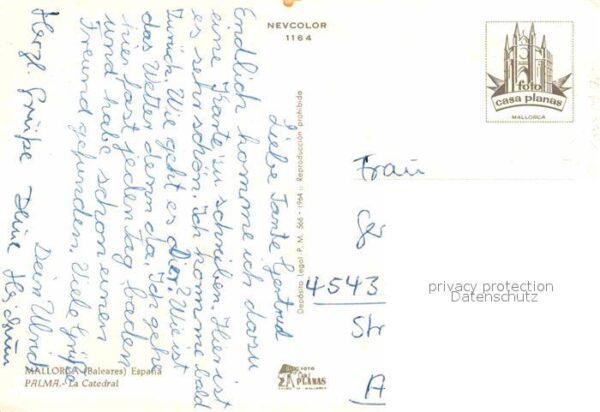 NEVCOLOR
1164
foto
casa planas
MALLORCA
Liebe Tante Gertrud
Endlich komme ich dazu
eine Karte zu schreiben. Hier ist
es sehr schön. Ich komme bald
zurück. Wie geht es Dir? Wie ist
das Wetter denn da. Ich gehe
hier fast jeden Tag baden
und habe schon einen
Freund gefunden. Viele Grüße
Dein Ulrich
Herzl. Grüße Deine
Frau
Ger
4543
Str
A
privacy protection
Datenschutz
Depósito Legal P. M. 566 - 1964 :: Reproducción prohibida
MALLORCA (Baleares) España
PALMA.- La Catedral
FOTO
PLANAS